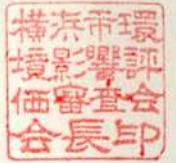 横浜市環
境影響評
価審査会
会長印